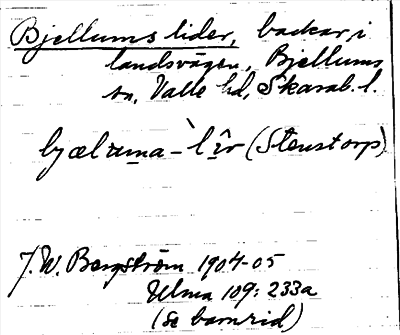 Bjellums lider, backar i
landsvägen, Bjellums
sn, Valle hd, Skarab. l.
bjæluma-lîr (Stenstorp)
J. W. Bergström 1904-05
Ulma 109: 233a
(se barnrid)